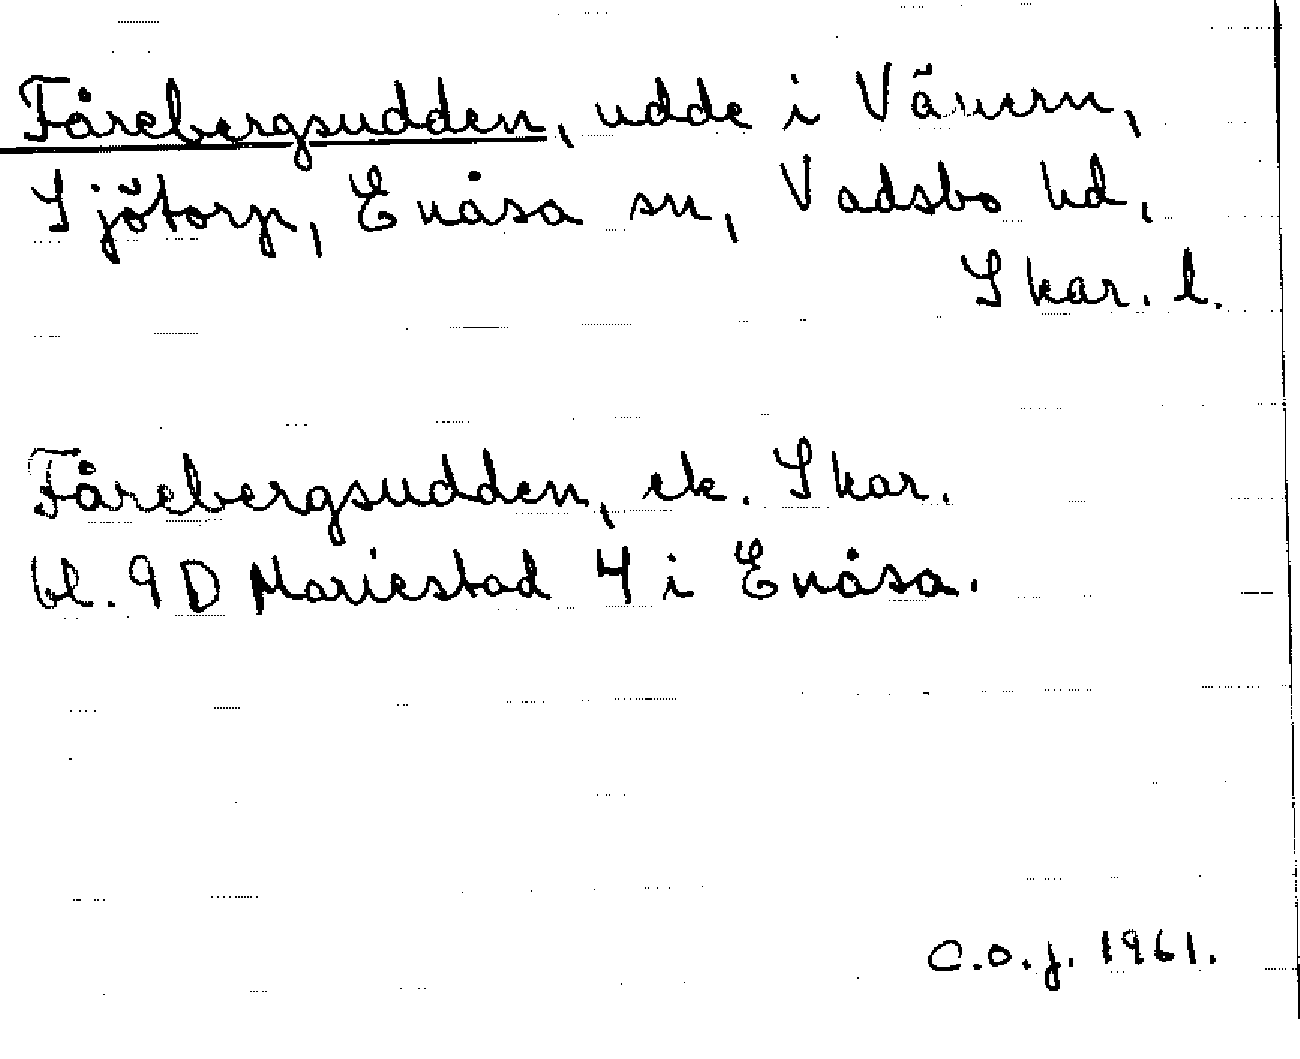 Fårebergsudden, udde i Vänern,
Sjötorp, Enåsa sn, Vadsbo hd,
Skar. l.
Fårebergsudden, ek. Skar.
bl. 9 D Mariestad 4 i Enåsa.
C.O.J. 1961.